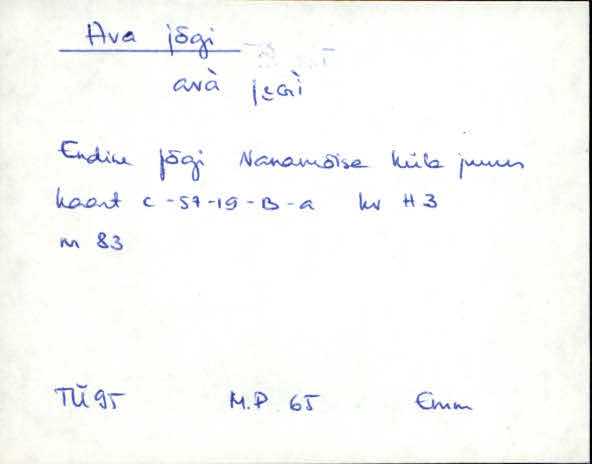 Ava jõgi
avà
Endine jõgi Vanamõisa küla juures
kaart C-57-19-B-a kv H3
m 83
TÜ 95 M.P. 65 Emm